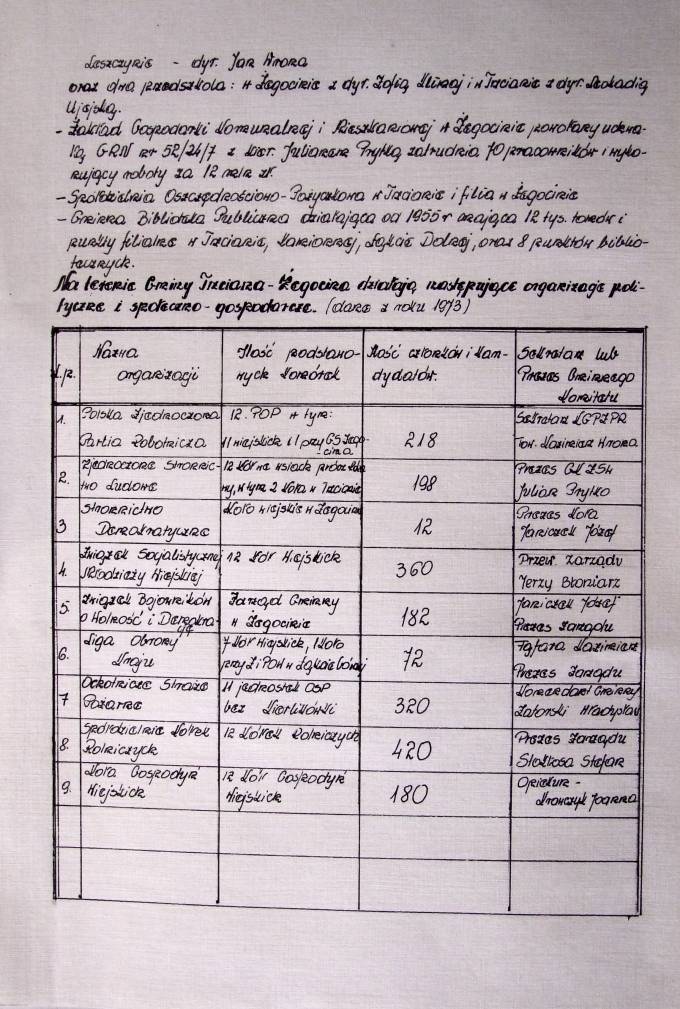 Leszczynie - dyr. Jan Wrona
oraz dwa przedszkola: w Żegocinie z dyr. Zofią Kuraj i w Trzcianie z dyr. Leokadią
Ujejską.
- Zakład Gospodarki Komunalnej i Mieszkaniowej w Żegocinie powołany uchwa-
łą GRN nr 52/24/7 z kier. Julianem Prytko zatrudnia 70 pracowników i wyko-
nujący roboty za 12 mln zł.
- Spółdzielnia Oszczędnościowo-Pożyczkowa w Trzcianie i filia w Żegocinie
- Gminna Biblioteka Publiczna działająca od 1955 r mająca 12 tys. tomów i
punkty filialne w Trzcianie, Kamionnej, Łąkcie Dolnej, oraz 8 punktów biblio-
tecznych.
Na terenie Gminy Trzciana-Żegocina działają następujące organizacje poli-
tyczne i społeczno-gospodarcze. (dane z roku 1973)
L.p. Nazwa organizacji Ilość podstawo-wych komórek Ilość członków i kan-dydatów. Sekretarz lub Prezes Gminnego Komitetu
1. Polska Zjednoczona Partia Robotnicza 12 POP w tym: 11 wiejskich i 1 przy GS Żego-cina 218 Sekretarz KG PZPR Tow. Kazimierz Wrona
2. Zjednoczone Stronnic-two Ludowe 12 kół na wsiach w tym 2 koła w Trzcianie 198 Prezes GK ZSL Julian Prytko
3 Stronnictwo Demokratyczne Koło wiejskie w Żegocinie 12 Prezes Koła Janiczek Józef
4. Związek Socjalistycznej Młodzieży Wiejskiej 12 kół Wiejskich 360 Przew. Zarządu Jerzy Błoniarz
5. Związek Bojowników o Wolność i Demokra-cję Zarząd Gminny w Żegocinie 182 Janiczek Józef Prezes Zarządu
6. Liga Obrony Kraju 7 kół Wiejskich, 1 koło przy ZiPOW w Łąkcie Górnej 72 Fąfara Kazimierz Prezes Zarządu
7 Ochotnicze Straże Pożarne 11 jednostek OSP bez Kierlikówki 320 Komendant Gminny Zatorski Władysław
8. Spółdzielnie Kółek Rolniczych 12 Kółek Rolniczych 420 Prezes Zarządu Stokłosa Stefan
9. Koła Gospodyń Wiejskich 12 kół Gospodyń Wiejskich 180 Opiekun - Krawczyk Joanna